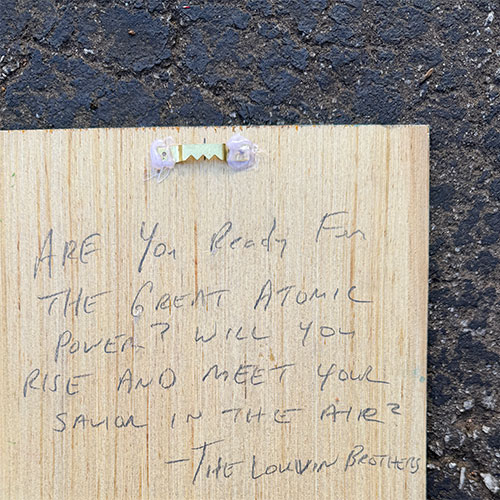 ARE You Ready For
THE GREAT ATOMIC
POWER? WILL YOU
RISE AND MEET YOUR
SAVIOR IN THE AIR?
-THE LOUVIN BROTHERS